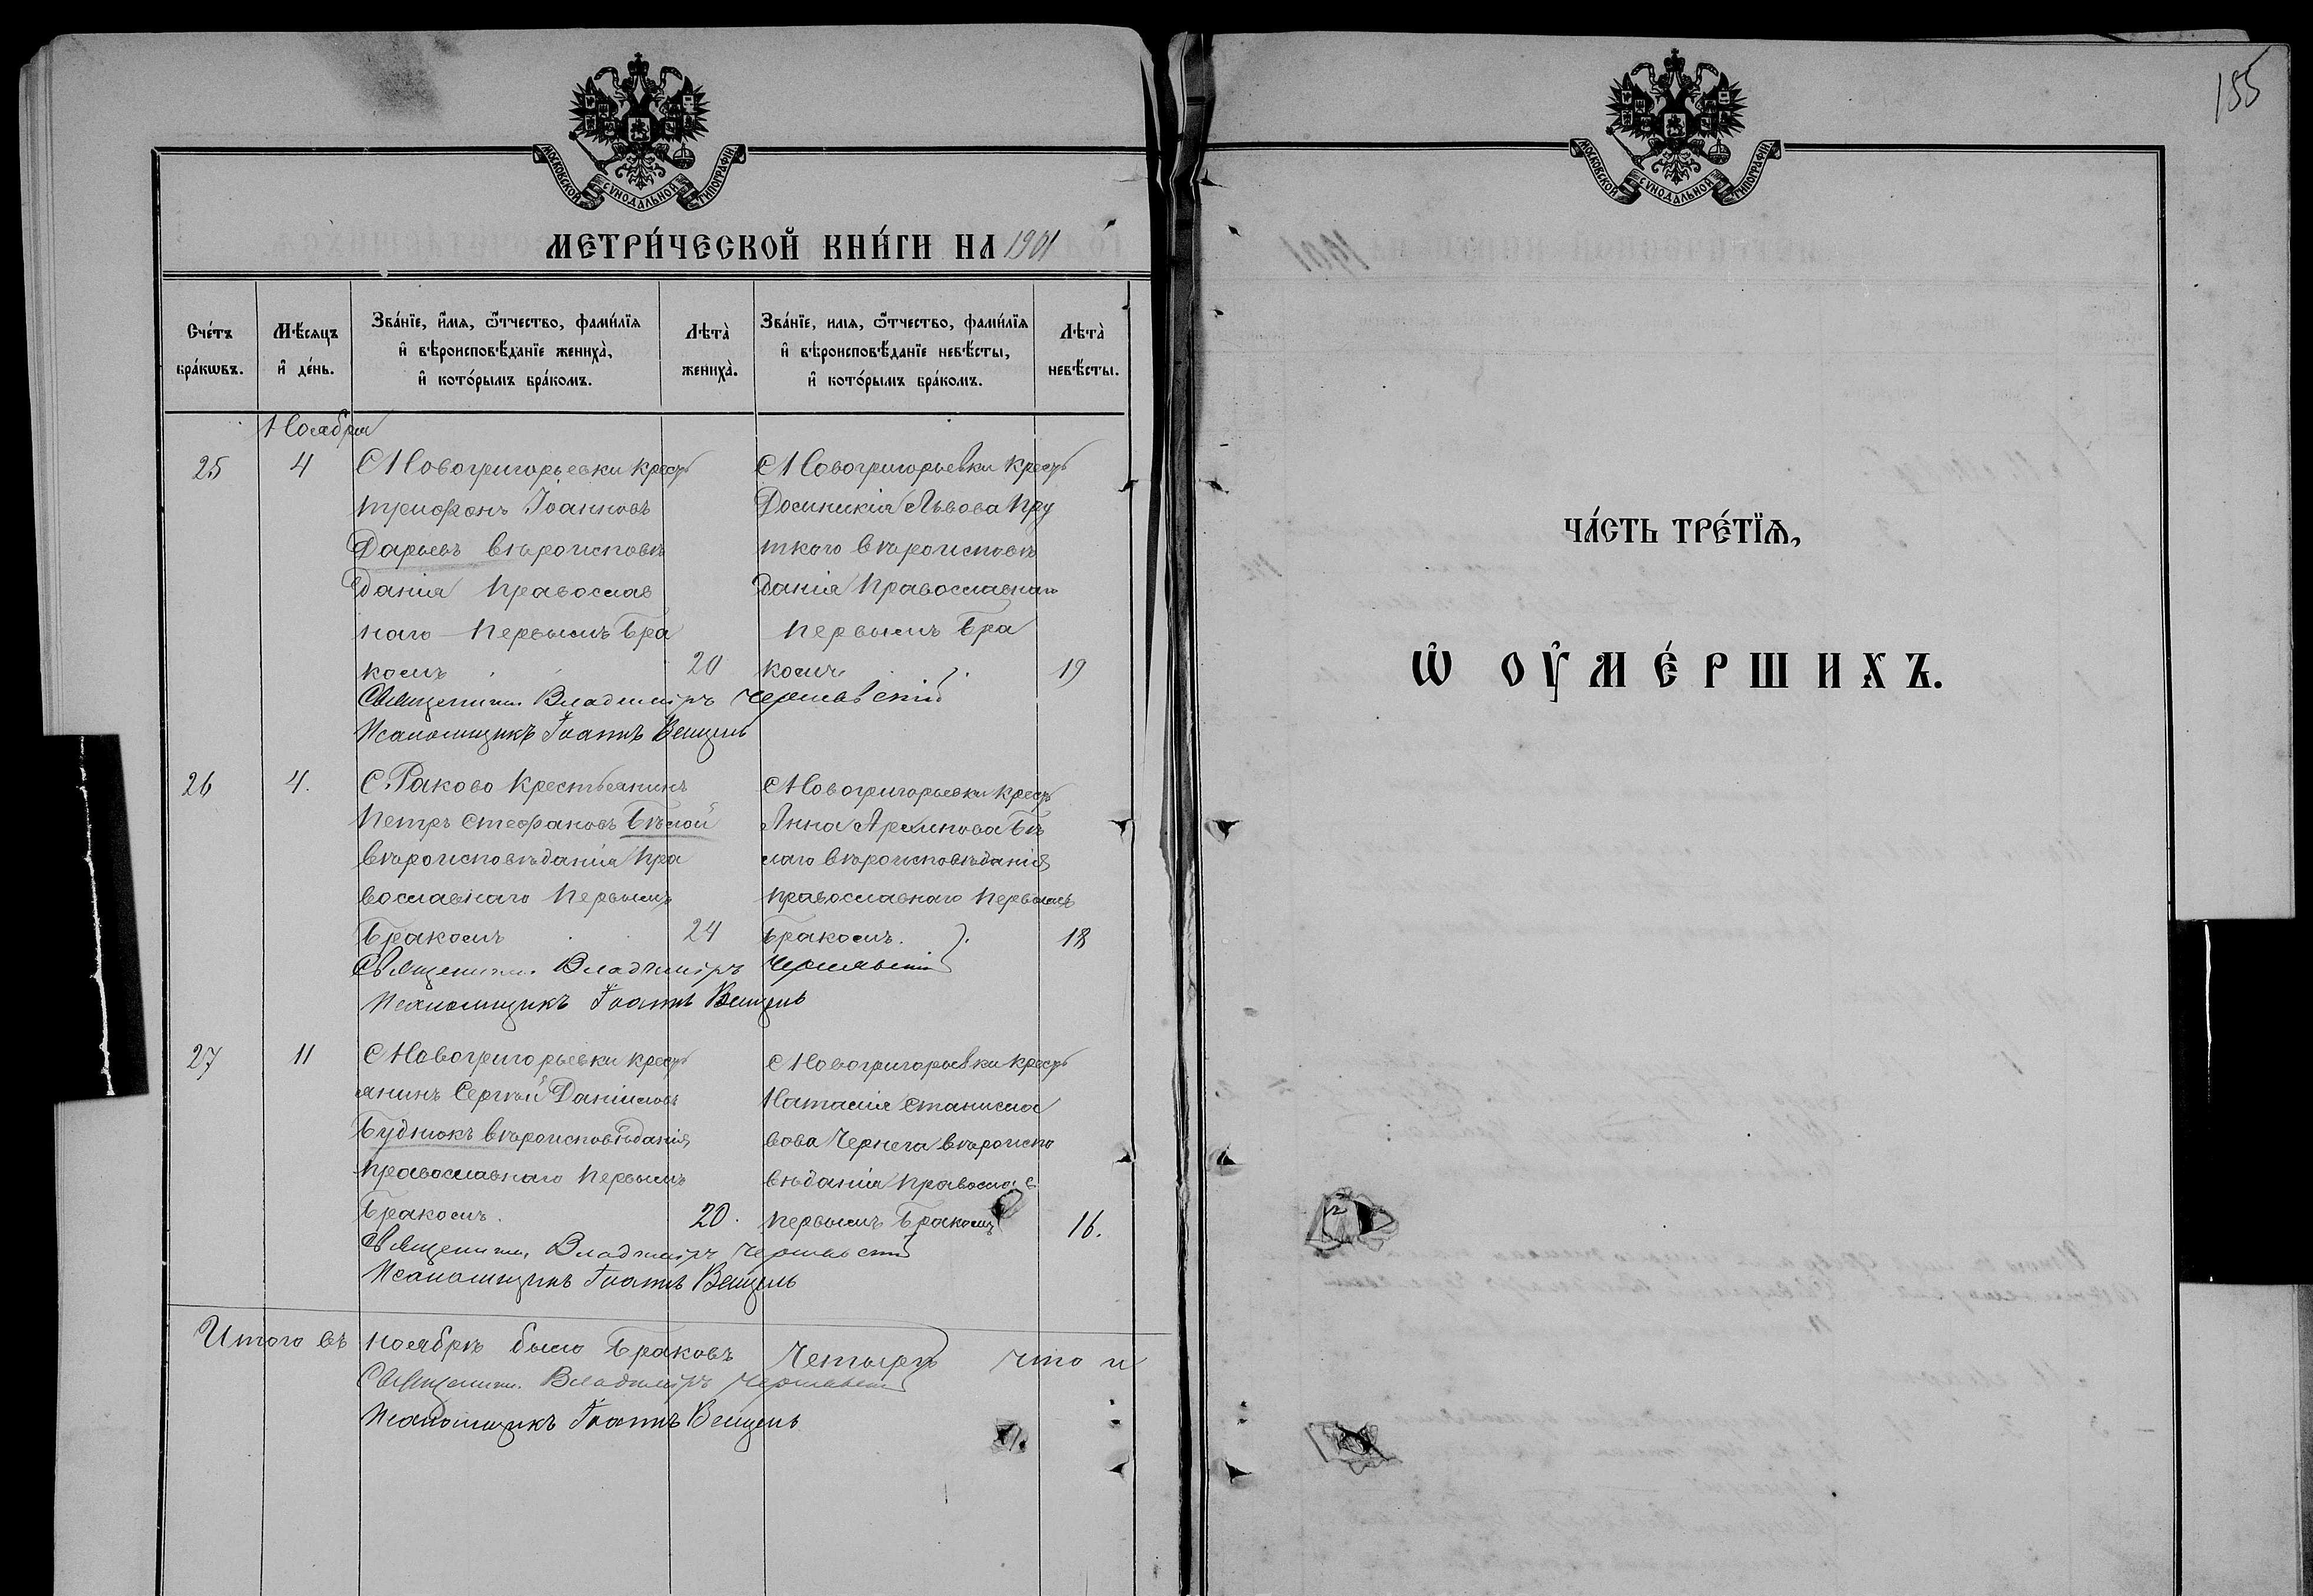 МОСКОВСКОЙ СУНОДАЛЬНОЙ ТИПОГРАФІИ
МЕТРИ́ЧЕСКОЙ КНИ́ГИ НА 1901
Сче́тъ бра́кωвъ.
Мѣ́сяцъ и҆ де́нь.
Зва́нїе, и҆́мѧ, ѻ҆́тчество, фами́лїѧ и҆ вѣроисповѣ́данїе жениха̀, и҆ кото́рымъ бра́комъ.
Лѣта̀ жениха̀.
Зва́нїе, имѧ, ѻ҆́тчество, фами́лїѧ и҆ вѣроисповѣ́данїе невѣ́сты, и҆ кото́рымъ бра́комъ.
Лѣта̀ невѣ́сты.
Ноября
25 4
С Новогригорьевки крест
Трифонъ Іоанновъ
Дарьевъ вѣроисповѣ
данія православ
наго первымъ бра
комъ 20
С Новогригорьевки крест
Львова Пру
ткаго вѣроисповѣ
данія православнаго
первымъ бра
комъ 19
Священникъ Владиміръ Чернявскій
Псаломщикъ Іоаннъ Венцель
26 4.
С. Раково крестьянинъ
Петръ Стефановъ Бѣлой
вѣроисповѣданія пра
вославнаго первымъ
бракомъ 24
С Новогригорьевки крест
Анна Бѣ
лаго вѣроисповѣданія
православнаго первымъ
бракомъ. 18
Священникъ Владиміръ Чернявскій
Псаломщикъ Іоаннъ Венцель
27 11
С Новогригорьевки крест
янинъ Сергѣй Даніиловъ
Буднюкъ вѣроисповѣданія
православнаго первымъ
бракомъ. 20.
С Новогригорьевки крест
Наталія Станисла
вова Чернега вѣроиспо
вѣданія православ
первымъ бракомъ 16.
Священникъ Владиміръ Чернявскій
Псаломщикъ Іоаннъ Венцель
Итого въ ноябрѣ было браковъ четыре что и
Священникъ Владиміръ Чернявскій
Псаломщикъ Іоаннъ Венцель
155
МОСКОВСКОЙ СУНОДАЛЬНОЙ ТИПОГРАФІИ
ЧА́СТЬ ТРЕ́ТЇѦ,
Ѡ҆ ОУ҆МЕ́РШИХЪ.